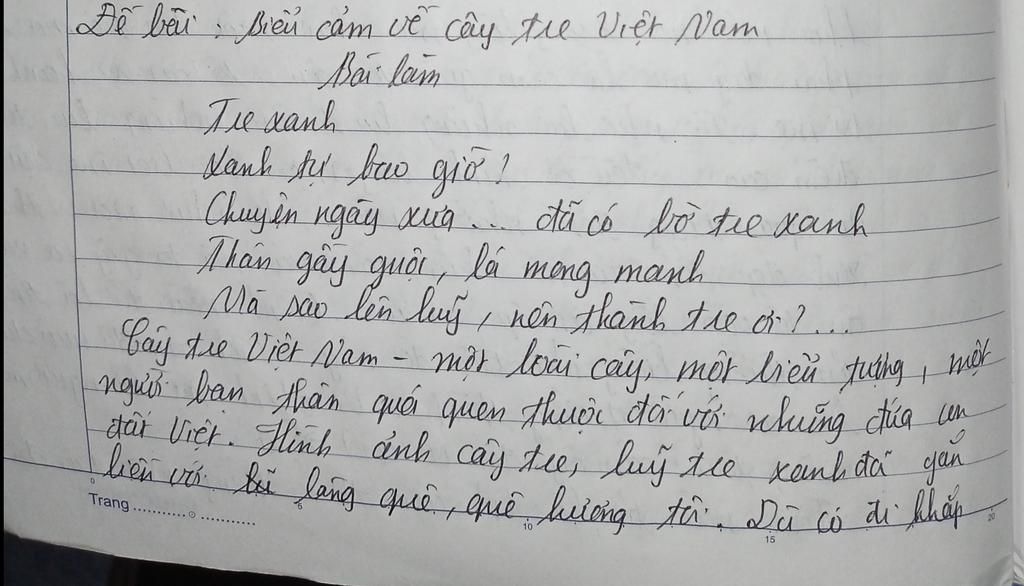 Đề bài : Biểu cảm về cây tre Việt Nam
Bài làm
Tre xanh
Xanh tự bao giờ ?
Chuyện ngày xưa ... đã có bờ tre xanh
Thân gầy guộc, lá mong manh
Mà sao lên luỹ, nên thành tre ơi ? ...
Cây tre Việt Nam - một loài cây, một biểu tượng, một
người bạn thân quá quen thuộc đối với những đứa con
đất Việt. Hình ảnh cây tre, luỹ tre xanh đã gắn
liền với làng quê, quê hương tôi. Dù có đi khắp
Trang ............
0 5 10 15 20